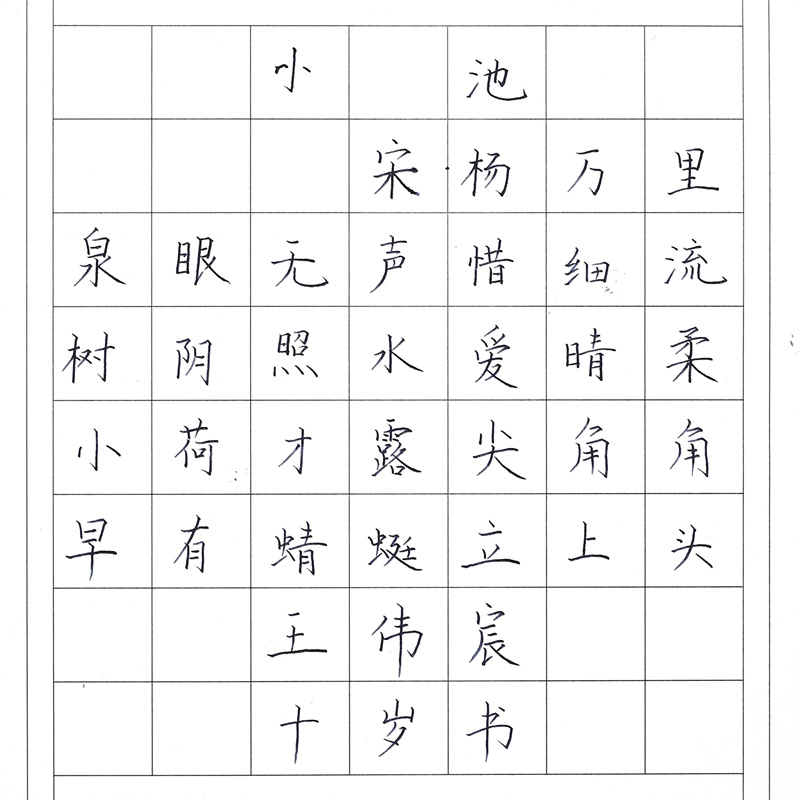 小池
宋·杨万里
泉眼无声惜细流
树阴照水爱晴柔
小荷才露尖角角
早有蜻蜓立上头
王伟宸
十岁书